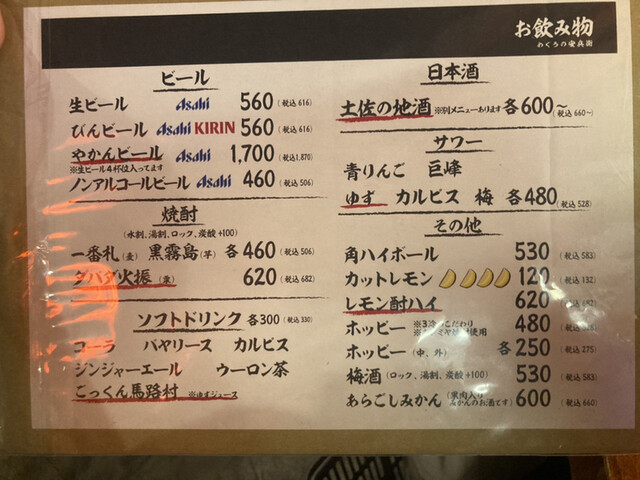 お飲み物
わくらの安兵衛
ビール
生ビール Asahi 560 (税込616)
びんビール Asahi KIRIN 560 (税込616)
やかんビール Asahi 1,700 (税込1,870)
※生ビール4杯位入ってます
ノンアルコールビール Asahi 460 (税込506)
焼酎
(水割、湯割、ロック、炭酸+100)
一番札(麦) 黒霧島(芋) 各460 (税込506)
ダバダ火振(栗) 620 (税込682)
ソフトドリンク 各300 (税込330)
コーラ バヤリース カルピス
ジンジャーエール ウーロン茶
ごっくん馬路村 ※ゆずジュース
日本酒
土佐の地酒 ※別メニューあります 各600〜 (税込660〜)
サワー
青りんご 巨峰
ゆず カルピス 梅 各480 (税込528)
その他
角ハイボール 530 (税込583)
カットレモン 120 (税込132)
レモン酎ハイ 620 (税込682)
ホッピー ※3冷のこだわり 480
使用
ホッピー (中、外) 各250 (税込275)
梅酒 (ロック、湯割、炭酸+100) 530 (税込583)
あらごしみかん (果肉入り みかんのお酒です) 600 (税込660)